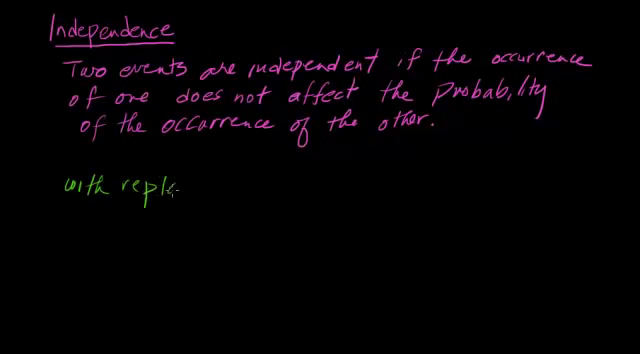 Independence
Two events are independent if the occurrence
of one does not affect the Probability
of the occurrence of the other.
with repla